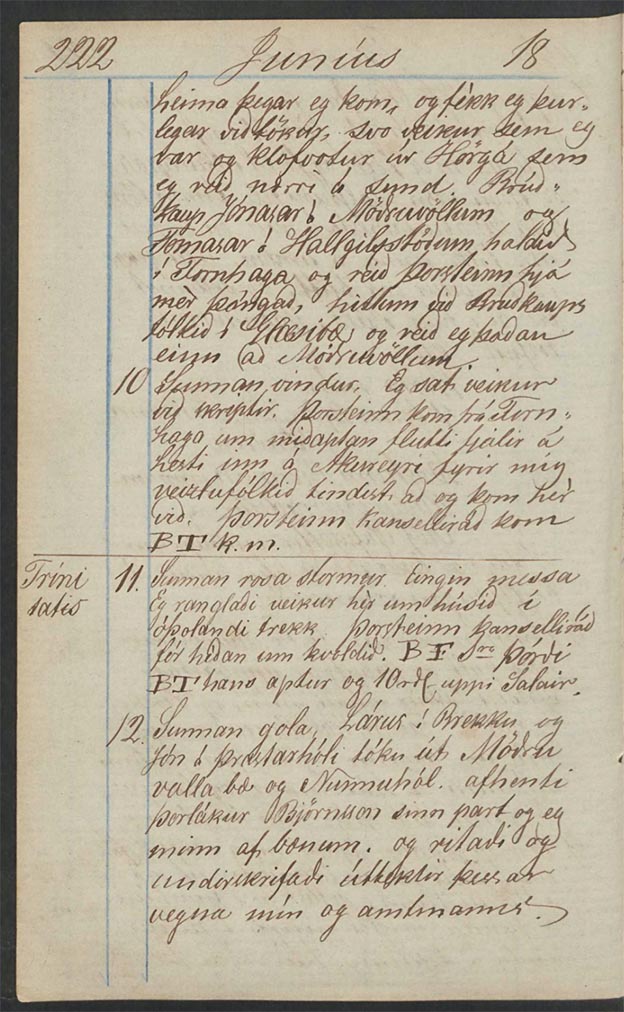 222 Juníus 18
heima þegar eg kom, og fékk eg þur-
legar viðtökur, svo veikur sem eg
var og klofvotur úr Hörgá sem
eg reið nærri á sund. Brúð-
kaup Jónasar á Möðruvöllum og
Tómasar á Hallgilsstöðum haldið
í Fornhaga og reið Þorsteinn hjá
mèr þángað, hittum við Brúðkaups
fólkið í Glæsibæ og reið eg þaðan
einn að Möðruvöllum
10 Sunnan vindur. Eg sat veikur
við skriptir. Þorsteinn kom frá Forn-
haga um miðaptan flutti fjalir á
hesti inn á Akureyri fyrir mig
veizlufólkið tíndist að og kom hèr
við. Þorsteinn kansellíráð kom
BT k.m.
Tríni
tatis
11. Sunnan rosa stormur. Eingin messa
Eg ranglaði veikur hèr um húsið í
óþolandi trekk. Þorsteinn kansellíráð
fór hèðan um kvöldið. BF Sra Þórði
BT hans aptur og 10rd uppí Salair.
12. Sunnan gola, Lárus í Brekku og
Jón á Prestarhóli tóku út Möðru
valla bæ og Nunnuhól. afhenti
Þorlákur Björnsson sinn part og eg
minn af bænum. og ritaði og
undirskrifaði úttektir þessar
vegna mín og amtmanns.